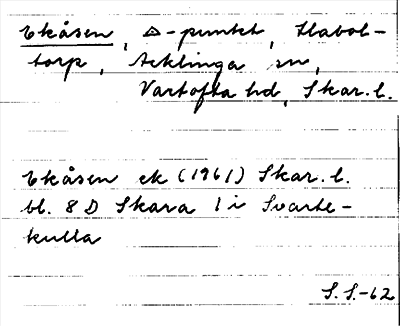 Ekåsen, △-punkt, Slabol-
torp, Acklinga sn,
Vartofta hd, Skar. l.
Ekåsen ek (1961) Skar. l.
bl. 8 D Skara 1 i Svarte-
kulla
S. S.-62